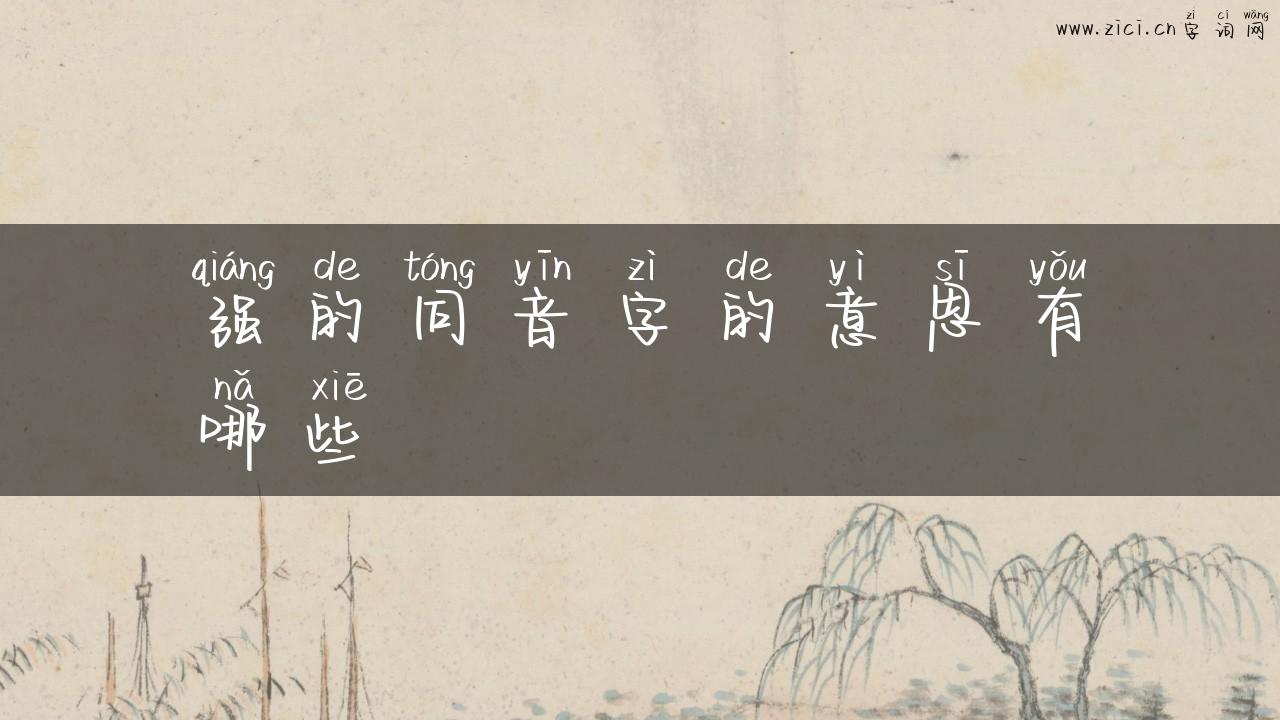 zì cí wǎng
www.zici.cn 字词网
qiáng de tóng yīn zì de yì sī yǒu
强的同音字的意思有
nǎ xiē
哪些